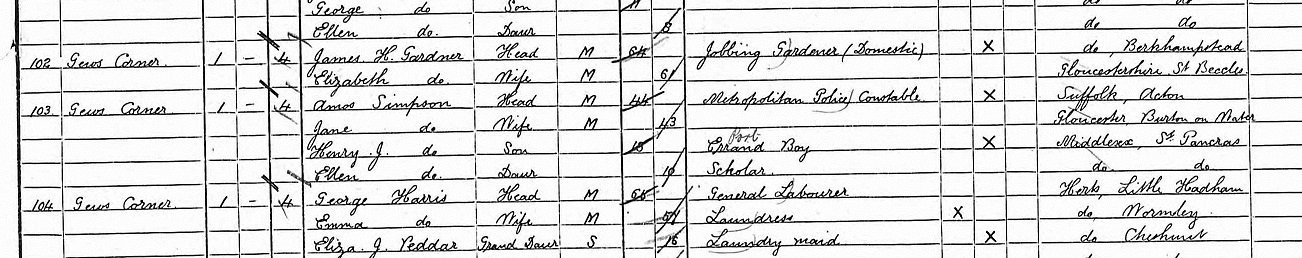 George do Son 11
Ellen do. Daur 8 do do
102 Gews Corner 1 - 4 James. H. Gardner Head M 64 Jobbing Gardener (Domestic) X do, Berkhampstead
Elizabeth do Wife M 61 Gloucestershire St Beccles
103 Gews Corner 1 - 4 Amos Simpson Head M 44 Metropolitan Police Constable X Suffolk, Acton
Jane do Wife M 43 Gloucester Burton on Water
Henry. J. do Son 15 Errand Boy X Middlesex, St Pancras
Ellen do. Daur Scholar do. do
104 Gews Corner 1 - 4 George Harris Head M General Labourer Herts, Little Hadham
Emma do Wife M Laundress X do, Wormley
Eliza. J. Peddar Grand Daur S 16 Laundry maid X do Cheshunt